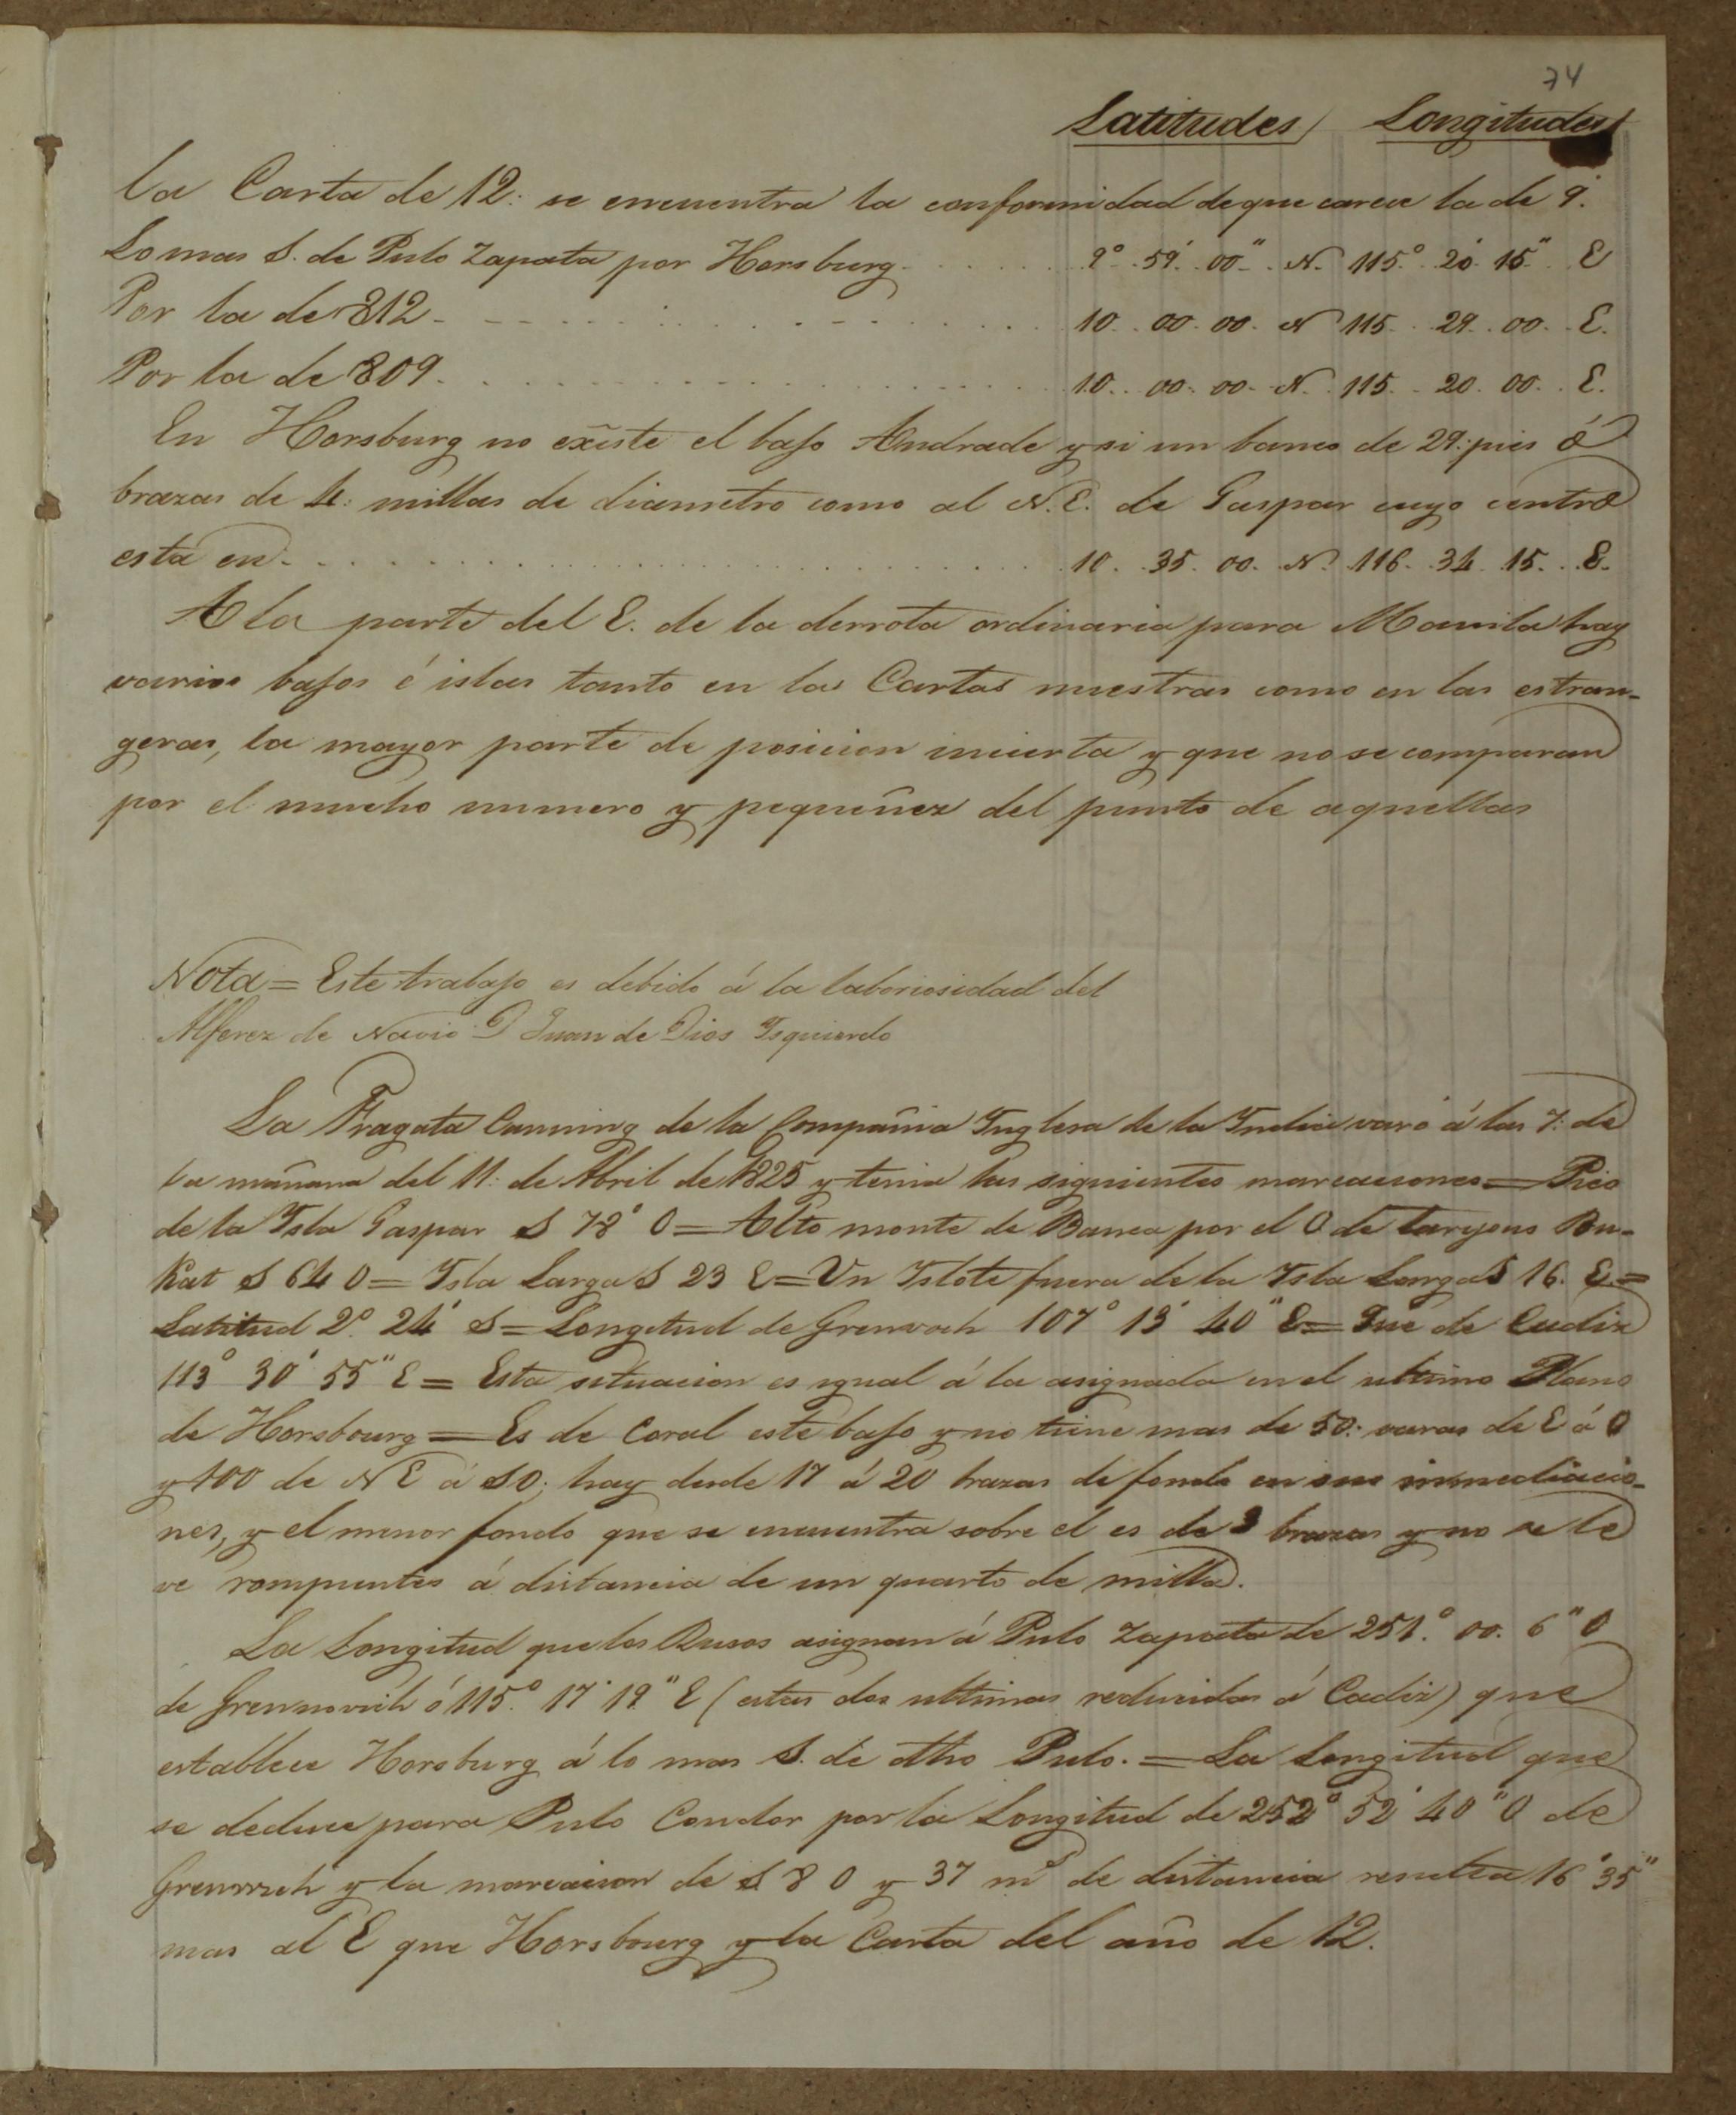 74
Latitudes Longitudes
la Carta de 12: se encuentra la conformidad de que carece la de 9.
Lo mas S. de Pulo Zapata por Horsburg. 9° 59' 00" N. 115° 20' 15" E
Por la de 812 10. 00. 00. N 115. 29. 00. E.
Por la de 809. 10. 00. 00. N. 115. 20. 00. E.
En Horsburg no existe el bajo Andrade y si un banco de 29: pies ó
brazas de 4: millas de diametro como al N.E. de Gaspar cuyo centro
esta en 10. 35. 00. N. 116. 34. 15. E.
A la parte del E. de la derrota ordinaria para Manila hay
varios bajos é islas tanto en las Cartas nuestras como en las estran-
geras, la mayor parte de posicion incierta y que no se comparan
por el mucho numero y pequeñez del punto de aquellas
Nota = Este trabajo es debido á la laboriosidad del
Alferez de Navio D Juan de Dios Isquierdo
La Fragata Canning de la Compañia Inglesa de la India varó á las 7: de
la mañana del 11: de Abril de 1825 y tenia las siguientes marcaciones = Pico
de la Isla Gaspar S 78° O = Alto monte de Banca por el O de
Kat S 64 O = Isla Larga S 23 E = Un Islote fuera de la Isla Larga S 16. E =
Latitud 2° 24' S = Longitud de 107° 13' 40" E = de Cadiz
113° 30' 55" E = Esta situacion es ygual á la asignada en el ultimo Plano
de Horsbourg = Es de Coral este bajo y no tiene mas de 50: varas de E á O
y 100 de N E á S O; hay desde 17 á 20 brazas de fondo en sus inmediacio-
nes, y el menor fondo que se encuentra sobre el es de 3 brazas y no se le
ve rompientes á distancia de un quarto de milla.
La Longitud que los Rusos asignan á Pulo Zapata de 251° 00. 6" O
de ó 115° 17' 19" E (estas dos ultimas reducidas á Cadiz) que
establece Horsburg á lo mas S. de dho Pulo. = La Longitud que
se deduce para Pulo Condor por la Longitud de 252° 52' 40" O de
y la marcacion de S 8 O y 37 ms de distancia resulta 16' 35"
mas al E que Horsbourg y la Carta del año de 12.